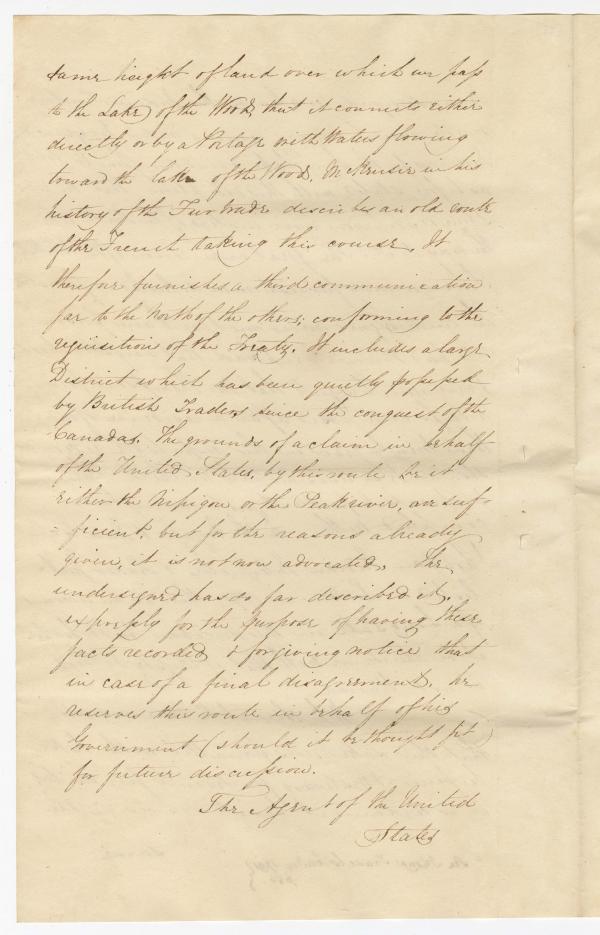 same height of land over which we pass
to the Lake of the Wood, that it connects either
directly or by a Portage with Waters flowing
toward the lake of the Wood. McKensie in his
history of the Fur trade describes an old route
of the French taking this course. It
therefore furnishes a third communication
far to the North of the others; conforming to the
requisition of the Treaty. It includes a large
District which has been quietly possessed
by British Traders since the conquest of the
Canadas. The grounds of a claim in behalf
of the United States, by this route be it
either the Nipigon or the Peak river, are suf-
=ficient, but for the reasons already
given, it is not now advocated. The
undersigned has so far described it,
expressly for the purpose of having these
facts recorded & for giving notice that
in case of a final disagreement, he
reserves this route in behalf of his
Government (should it be thought fit)
for future discussion.
The Agent of the United
States